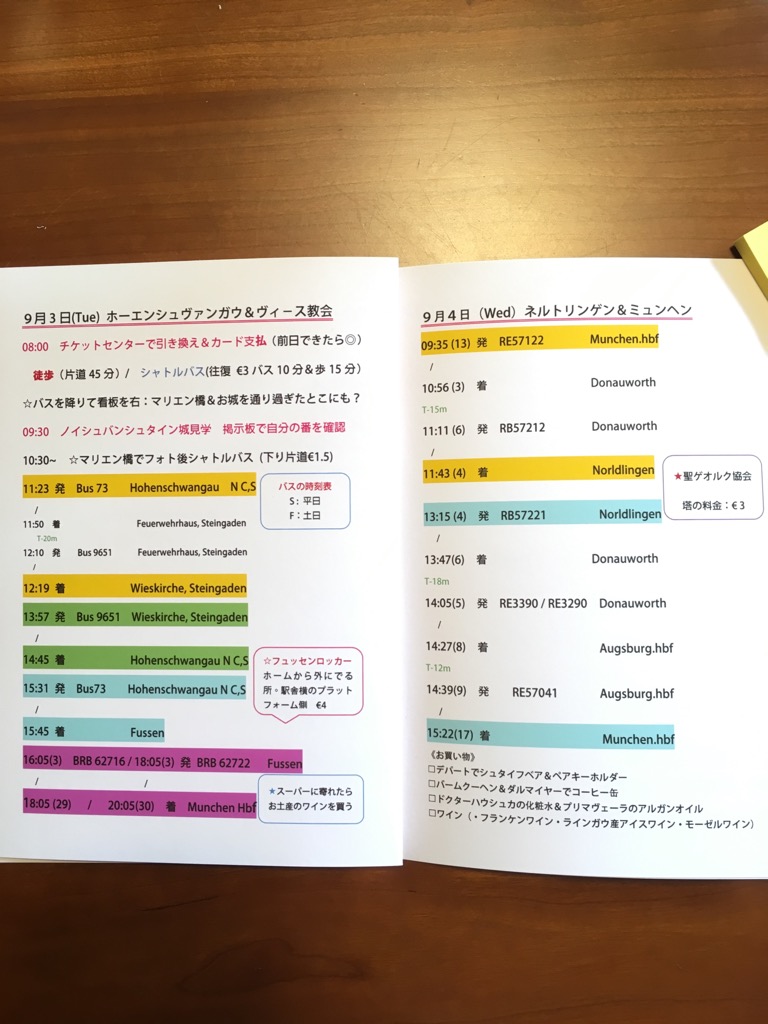 9月3日(Tue) ホーエンシュヴァンガウ＆ヴィース教会
08:00 チケットセンターで引き換え＆カード支払（前日できたら◎）
徒歩（片道 45 分）/ シャトルバス(往復 €3 バス 10 分＆歩 15 分）
☆バスを降りて看板を右：マリエン橋＆お城を通り過ぎたとこにも？
09:30 ノイシュバンシュタイン城見学 掲示板で自分の番を確認
10:30~ ☆マリエン橋でフォト後シャトルバス (下り片道€1.5)
11:23 発 Bus 73 Hohenschwangau N C,S
/
11:50 着 Feuerwehrhaus, Steingaden
T-20m
12:10 発 Bus 9651 Feuerwehrhaus, Steingaden
/
12:19 着 Wieskirche, Steingaden
13:57 発 Bus 9651 Wieskirche, Steingaden
/
14:45 着 Hohenschwangau N C,S
15:31 発 Bus73 Hohenschwangau N C,S
/
15:45 着 Fussen
16:05(3) BRB 62716 / 18:05(3) 発 BRB 62722 Fussen
/ /
18:05 (29) / 20:05(30) 着 Munchen Hbf
バスの時刻表
S : 平日
F : 土日
☆フュッセンロッカー
ホームから外にでる
所。駅舎横のプラット
フォーム側 €4
★スーパーに寄れたら
お土産のワインを買う
9月4日（Wed）ネルトリンゲン＆ミュンヘン
09:35 (13) 発 RE57122 Munchen.hbf
/
10:56 (3) 着 Donauworth
T-15m
11:11 (6) 発 RB57212 Donauworth
/
11:43 (4) 着 Norldlingen
13:15 (4) 発 RB57221 Norldlingen
/
13:47(6) 着 Donauworth
T-18m
14:05(5) 発 RE3390 / RE3290 Donauworth
/
14:27(8) 着 Augsburg.hbf
T-12m
14:39(9) 発 RE57041 Augsburg.hbf
/
15:22(17) 着 Munchen.hbf
★聖ゲオルク協会
塔の料金：€3
《お買い物》
□デパートでシュタイフベア＆ベアキーホルダー
□バームクーヘン＆ダルマイヤーでコーヒー缶
□ドクターハウシュカの化粧水＆プリマヴェーラのアルガンオイル
□ワイン（・フランケンワイン・ラインガウ産アイスワイン・モーゼルワイン）